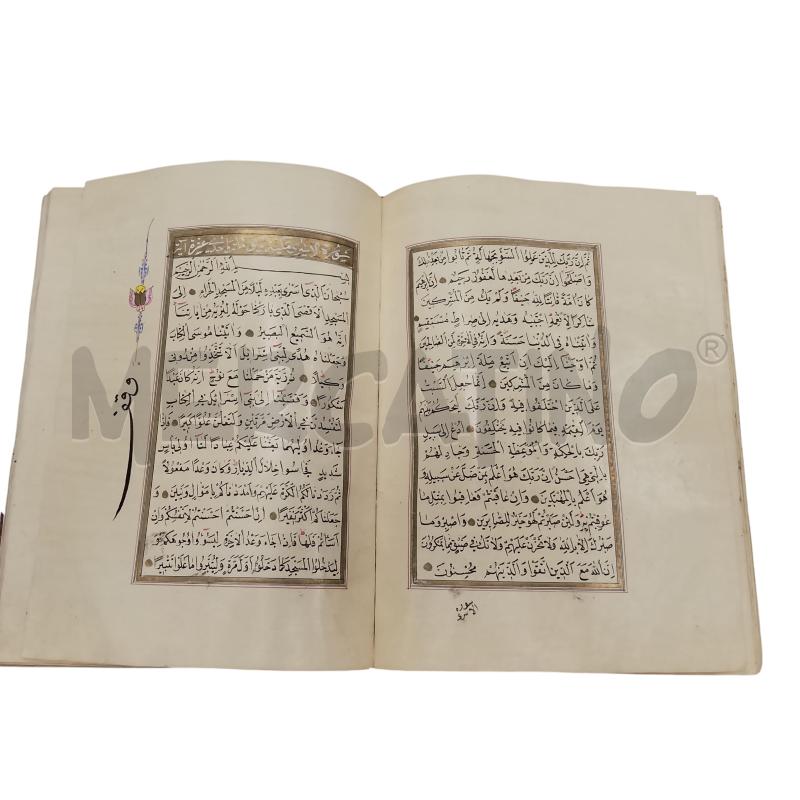 ثُمَّ اِنَّ رَبَّكَ لِلَّذِينَ عَمِلُوا السُّوءَ بِجَهَالَةٍ ثُمَّ تَابُوا مِنْ بَعْدِ ذٰلِكَ
وَاَصْلَحُوا اِنَّ رَبَّكَ مِنْ بَعْدِهَا لَغَفُورٌ رَحِيمٌ اِنَّ اِبْرٰهِيمَ
كَانَ اُمَّةً قَانِتًا لِلّٰهِ حَنِيفًا وَلَمْ يَكُ مِنَ الْمُشْرِكِينَ
شَاكِرًا لِاَنْعُمِهِ اجْتَبٰيهُ وَهَدٰيهُ اِلٰى صِرَاطٍ مُسْتَقِيمٍ
وَاٰتَيْنَاهُ فِي الدُّنْيَا حَسَنَةً وَاِنَّهُ فِي الْاٰخِرَةِ لَمِنَ الصَّالِحِينَ
ثُمَّ اَوْحَيْنَا اِلَيْكَ اَنِ اتَّبِعْ مِلَّةَ اِبْرٰهِيمَ حَنِيفًا
وَمَا كَانَ مِنَ الْمُشْرِكِينَ اِنَّمَا جُعِلَ السَّبْتُ
عَلَى الَّذِينَ اخْتَلَفُوا فِيهِ وَاِنَّ رَبَّكَ لَيَحْكُمُ بَيْنَهُمْ
يَوْمَ الْقِيٰمَةِ فِيمَا كَانُوا فِيهِ يَخْتَلِفُونَ اُدْعُ اِلٰى سَبِيلِ
رَبِّكَ بِالْحِكْمَةِ وَالْمَوْعِظَةِ الْحَسَنَةِ وَجَادِلْهُمْ
بِالَّتِي هِيَ اَحْسَنُ اِنَّ رَبَّكَ هُوَ اَعْلَمُ بِمَنْ ضَلَّ عَنْ سَبِيلِهِ وَ
هُوَ اَعْلَمُ بِالْمُهْتَدِينَ وَاِنْ عَاقَبْتُمْ فَعَاقِبُوا بِمِثْلِ مَا
عُوقِبْتُمْ بِهِ وَلَئِنْ صَبَرْتُمْ لَهُوَ خَيْرٌ لِلصَّابِرِينَ وَاصْبِرْ وَمَا
صَبْرُكَ اِلَّا بِاللّٰهِ وَلَا تَحْزَنْ عَلَيْهِمْ وَلَا تَكُ فِي ضَيْقٍ مِمَّا يَمْكُرُونَ
اِنَّ اللّٰهَ مَعَ الَّذِينَ اتَّقَوْا وَالَّذِينَ هُمْ مُحْسِنُونَ
سورة
بِسْمِ اللّٰهِ الرَّحْمٰنِ الرَّحِيمِ
سُبْحَانَ الَّذِي اَسْرٰى بِعَبْدِهِ لَيْلًا مِنَ الْمَسْجِدِ الْحَرَامِ اِلَى
الْمَسْجِدِ الْاَقْصَى الَّذِي بَارَكْنَا حَوْلَهُ لِنُرِيَهُ مِنْ اٰيَاتِنَا
اِنَّهُ هُوَ السَّمِيعُ الْبَصِيرُ وَاٰتَيْنَا مُوسَى الْكِتَابَ
وَجَعَلْنَاهُ هُدًى لِبَنِي اِسْرَائِيلَ اَلَّا تَتَّخِذُوا مِنْ دُونِي
وَكِيلًا ذُرِّيَّةَ مَنْ حَمَلْنَا مَعَ نُوحٍ اِنَّهُ كَانَ عَبْدًا
شَكُورًا وَقَضَيْنَا اِلٰى بَنِي اِسْرَائِيلَ فِي الْكِتَابِ
لَتُفْسِدُنَّ فِي الْاَرْضِ مَرَّتَيْنِ وَلَتَعْلُنَّ عُلُوًّا كَبِيرًا فَاِذَا
جَاءَ وَعْدُ اُولٰيهُمَا بَعَثْنَا عَلَيْكُمْ عِبَادًا لَنَا اُولِي بَاْسٍ
شَدِيدٍ فَجَاسُوا خِلَالَ الدِّيَارِ وَكَانَ وَعْدًا مَفْعُولًا
ثُمَّ رَدَدْنَا لَكُمُ الْكَرَّةَ عَلَيْهِمْ وَاَمْدَدْنَاكُمْ بِاَمْوَالٍ وَبَنِينَ وَ
جَعَلْنَاكُمْ اَكْثَرَ نَفِيرًا اِنْ اَحْسَنْتُمْ اَحْسَنْتُمْ لِاَنْفُسِكُمْ وَاِنْ
اَسَاْتُمْ فَلَهَا فَاِذَا جَاءَ وَعْدُ الْاٰخِرَةِ لِيَسُوءُوا وُجُوهَكُمْ وَ
لِيَدْخُلُوا الْمَسْجِدَ كَمَا دَخَلُوهُ اَوَّلَ مَرَّةٍ وَلِيُتَبِّرُوا مَا عَلَوْا تَتْبِيرًا
وقف
MERCATINO®